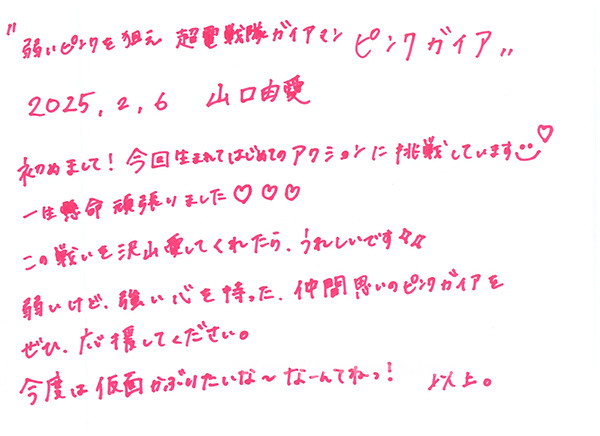 "弱いピンクを狙え 超電戦隊ガイアマン ピンクガイア"
2025, 2, 6 山口由愛
初めまして! 今回生まれてはじめてのアクションに挑戦しています
一生懸命頑張りました♡♡♡
この戦いを沢山愛してくれたら、うれしいです
弱いけど、強い心を持った、仲間思いのピンクガイアを
ぜひ、応援してください。
今度は仮面かぶりたいな〜なーんてねっ! 以上。